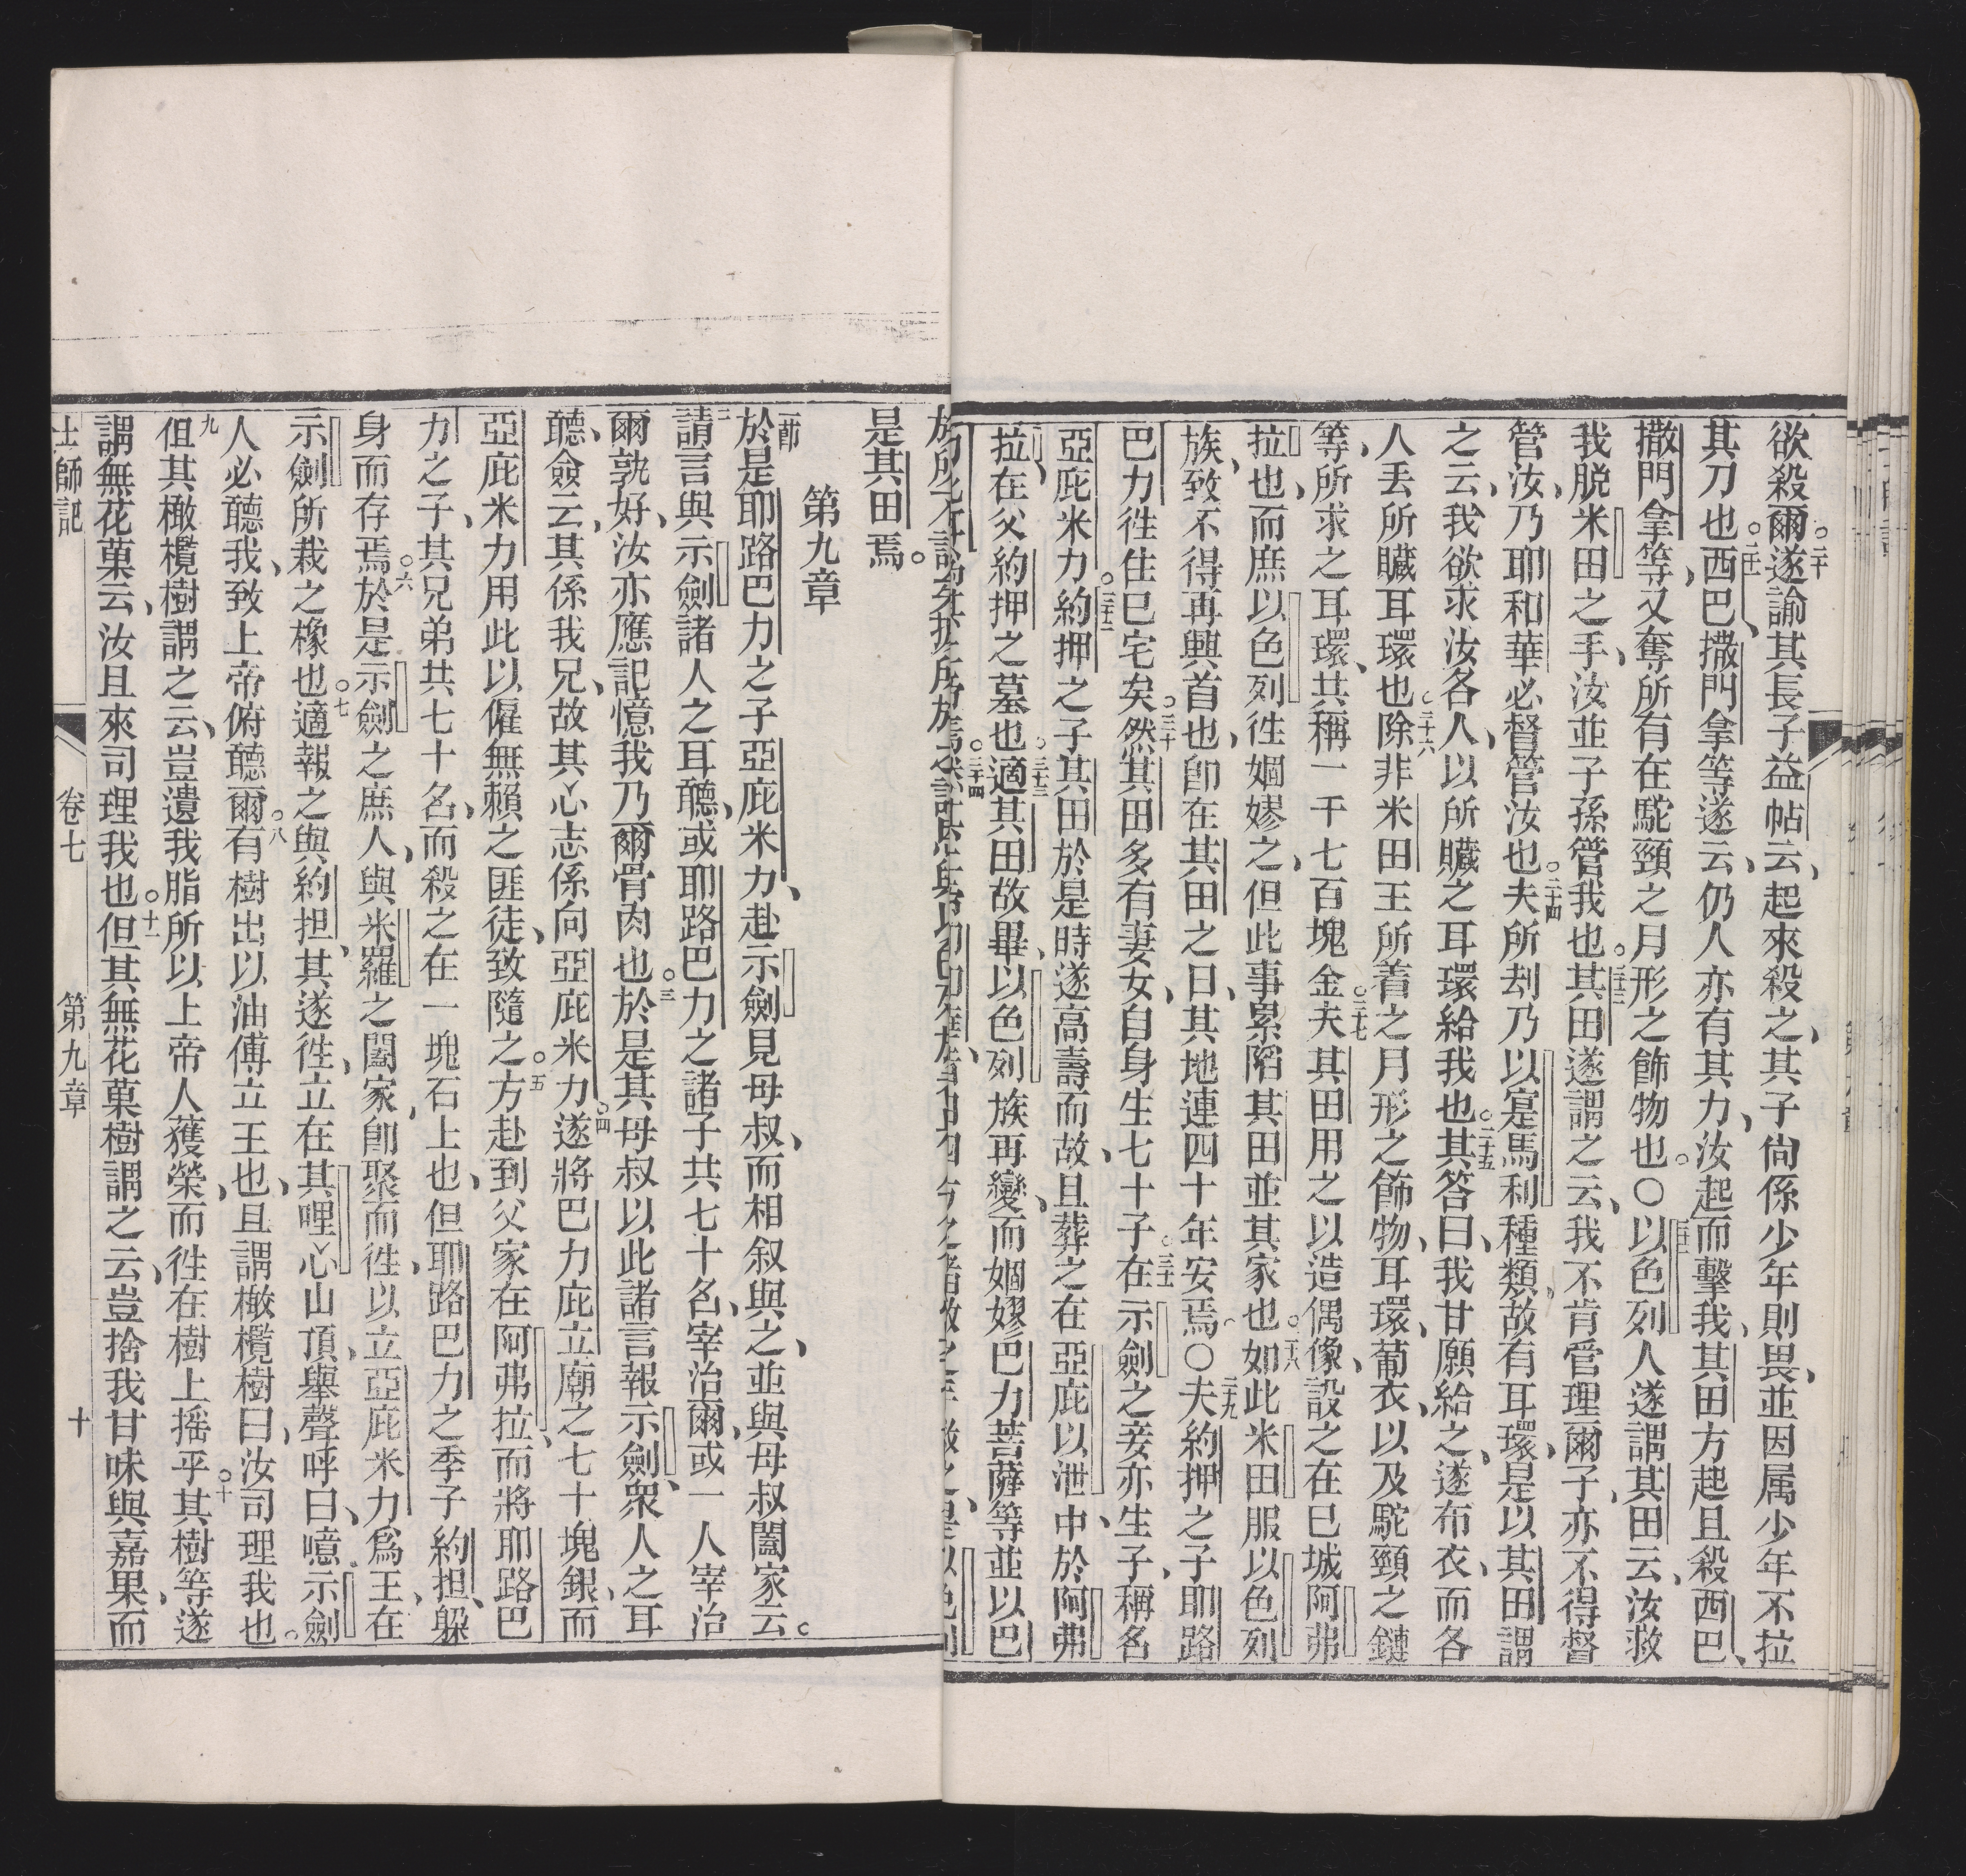 欲殺爾。二十遂諭其長子益帖云、起來殺之、其子尙係少年則畏、並因属少年不拉
其刀也。二十一西巴、撒門拿等遂云、仍人亦有其力、汝起而擊我、其田方起且殺西巴、
撒門拿等、又奪所有在駝頸之月形之飾物也。○二十二以色列人遂謂其田云、汝救
我脱米田之手、汝並子孫管我也。二十三其田遂謂之云、我不肯管理爾子、亦不得督
管汝、乃耶和華必督管汝也。二十四夫所刦乃以寔馬利種類、故有耳環、是以其田謂
之云、我欲求汝各人、以所贜之耳環給我也。二十五其答曰、我甘願給之、遂布衣、而各
人丢所贜耳環也。二十六除非米田王所着之月形之飾物、耳環、葡衣、以及駝頸之鏈
等、所求之耳環、共稱一千七百塊金。二十七夫其田用之以造偶像、設之在巳城阿弗
拉也、而庶以色列徃婟嫪之、但此事累陷其田並其家也。二十八如此米田服以色列
族、致不得再興首也、卽在其田之日、其地連四十年安焉。○二十九夫約押之子耶路
巴力徃住巳宅矣。三十然其田多有妻女、自身生七十子。三十一在示劍之妾亦生子、稱名
亞庇米力。三十二約押之子其田於是時遂高壽而故、且葬之在亞庇以泄中、於阿弗
拉、在父約押之墓也。三十三適其田故畢、以色列族再變、而婟嫪巴力菩薩等並以巴
是其田焉。
第九章
一節於是耶路巴力之子亞庇米力、赴示劍見母叔、而相叙與之、並與母叔闔家云。
二請言與示劍諸人之耳聽、或耶路巴力之諸子共七十名、宰治爾、或一人宰治
爾、孰好、汝亦應記憶我乃爾骨肉也。三於是其母叔以此諸言報示劍、衆人之耳
聽、僉云、其係我兄、故其心志係向亞庇米力。四遂將巴力庇立廟之七十塊銀、而
亞庇米力用此以僱無賴之匪徒、致隨之。五方赴到父家在阿弗拉、而將耶路巴
力之子、其兄弟共七十名、而殺之在一塊石上也、但耶路巴力之季子約担、躱
身而存焉。六於是示劍之庶人、與米羅之闔家、卽聚而徃、以立亞庇米力爲王、在
示劍所栽之橡也。七適報之與約担、其遂徃、立在其哩心山頂、舉聲呼曰、噫示劍
人必聽我、致上帝俯聽爾。八有樹出以油傅立王也、且謂橄欖樹曰、汝司理我也。
九伹其橄欖樹謂之云、豈遺我脂所以上帝人獲榮、而徃在樹上摇乎。十其樹等遂
謂無花菓云、汝且來司理我也。十一但其無花菓樹謂之云、豈捨我甘味與嘉果、而
士師記 卷七 第九章 十